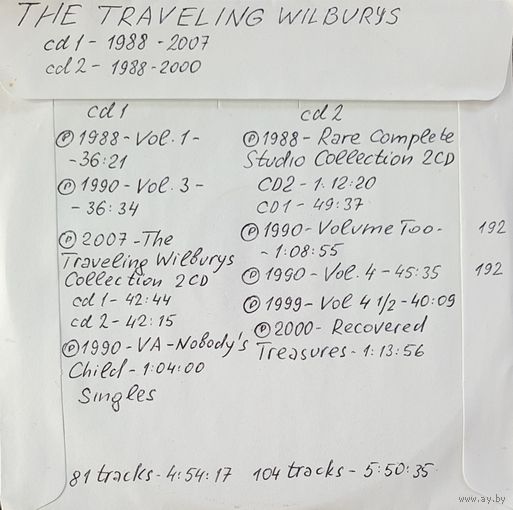 THE TRAVELING WILBURYS
cd 1 - 1988 - 2007
cd 2 - 1988 - 2000
cd 1
℗ 1988 - Vol. 1 -
- 36:21
℗ 1990 - Vol. 3 -
- 36:34
℗ 2007 - The
Traveling Wilburys
Collection 2CD
cd 1 - 42:44
cd 2 - 42:15
℗ 1990 - VA - Nobody's
Child - 1:04:00
Singles
81 tracks - 4:54:17
cd 2
℗ 1988 - Rare Complete
Studio Collection 2CD
CD2 - 1:12:20
CD1 - 49:37
℗ 1990 - Volume Too - 192
- 1:08:55
℗ 1990 - Vol. 4 - 45:35 192
℗ 1999 - Vol 4 1/2 - 40:09
℗ 2000 - Recovered
Treasures - 1:13:56
104 tracks - 5:50:35
www.ay.by